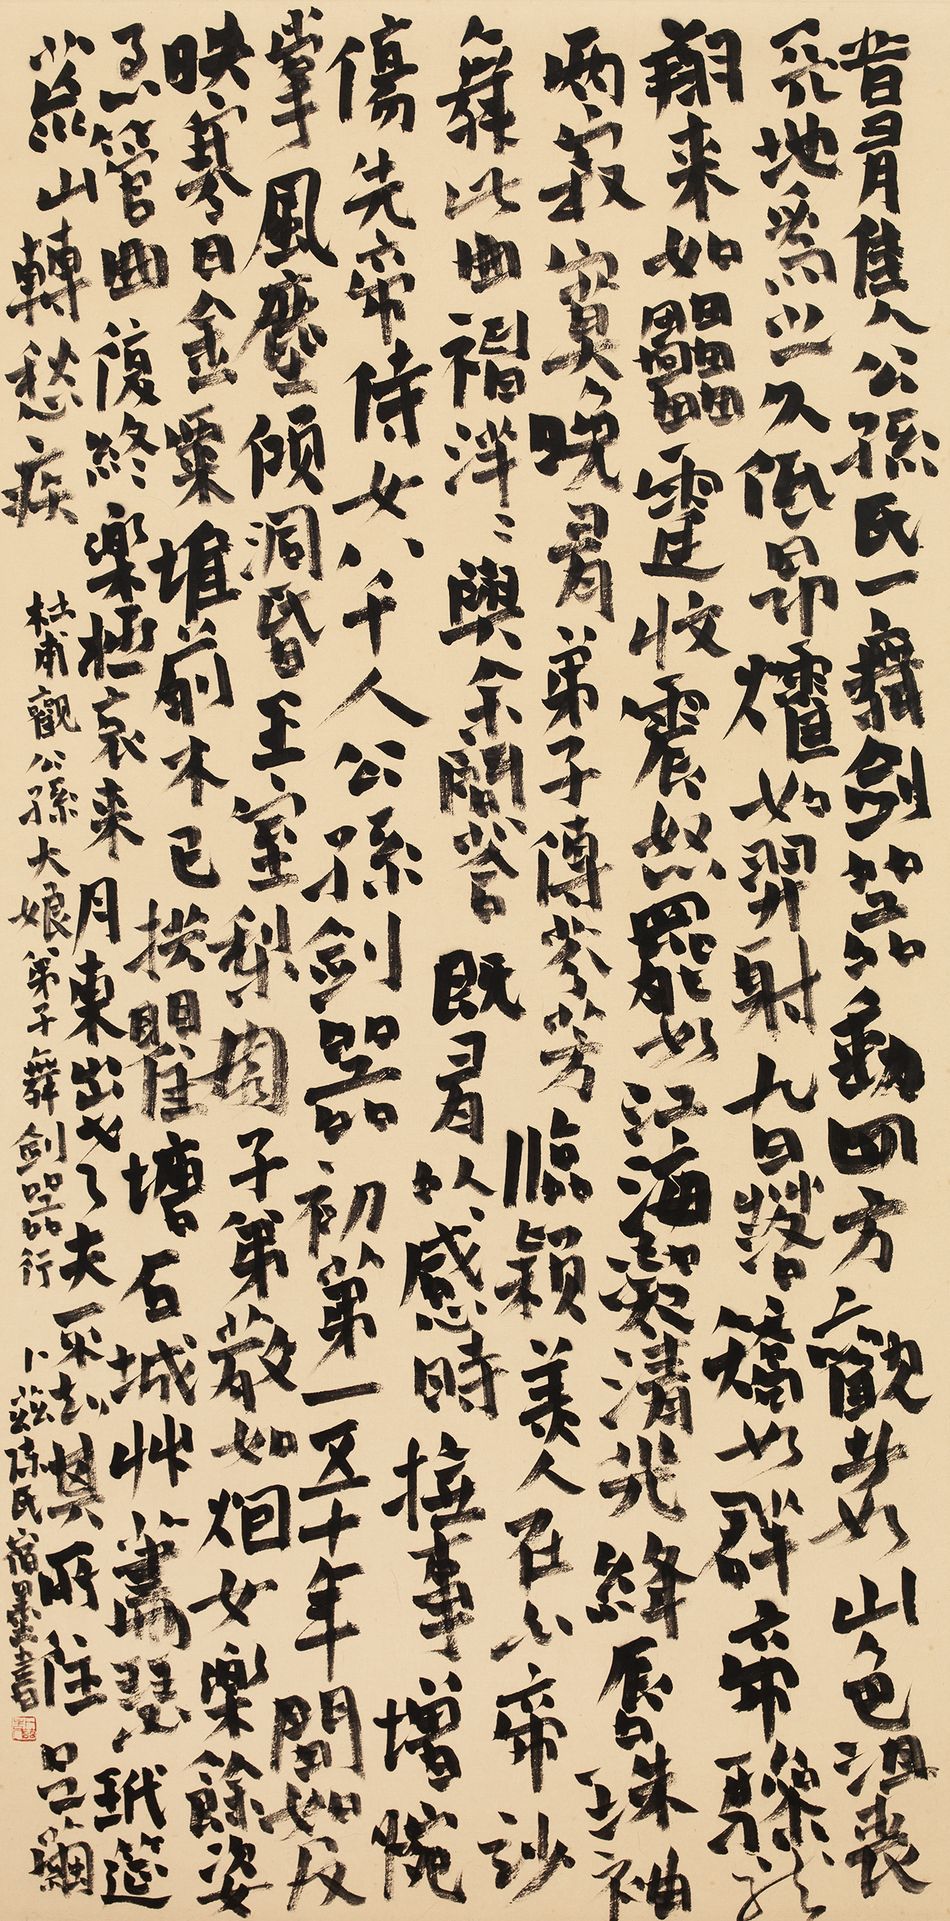 昔有佳人公孫氏一舞劍器動四方觀者如山色沮喪
天地為之久低昂㸌如羿射九日落矯如群帝驂龍
翔來如雷霆收震怒罷如江海凝清光絳脣珠袖
兩寂寞晚有弟子傳芬芳臨潁美人在白帝妙
舞此曲神揚〻與余問答既有以感時撫事增惋
傷先帝侍女八千人公孫劍器初第一五十年間如反
掌風塵澒洞昏王室梨園子弟散如烟女樂餘姿
映寒日金粟堆前木已拱瞿塘石城艸蕭瑟玳筵
急管曲復終樂極哀來月東出老夫不知其所往足繭
荒山轉愁疾
杜甫觀公孫大娘弟子舞劍器行 卜茲陳氏宿墨書